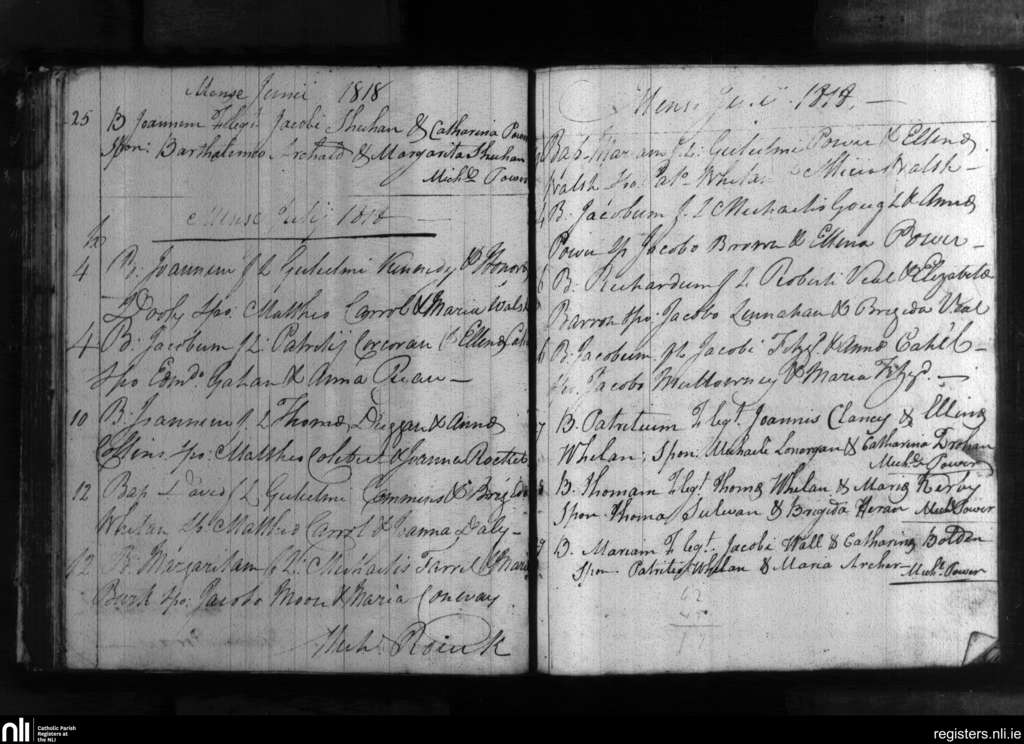 Mense Junii 1818
25 B Joannem F legt Jacobi Shehan & Catharina Power
Spon: Barthalemeo Archald & Margarita Shehan
Michl Power
Mense Julij 1818
4 B: Joannem f L Gulielmi Kennedy & Honora
Dooly Spo: Mattheo Carrol & Maria Walsh
4 B: Jacobum f L: Patritij Corcoran & Ellena
Spo Edmdo Gahan & Anna Ryan
10 B: Joannem f L Thomæ Duggan & Annæ
Collins. Spo: Mattheo & Joanna
12 Bap David f L Gulielmi Commins & Brigida
Whelan Sp: Mattheo Carrol & Joanna Daly
12 B: Margaritam f L: Michaelis Farrel & Maria
Burk Spo: Jacobo Moon & Maria Conway
Mich:
Mense 1818.
Bap. Mariam f L: Gulielmi Power & Ellenæ
Walsh Spo: Pato Whelan Walsh
4 B: Jacobum f L Michaelis Goug L & Annæ
Power Sp Jacobo Brown & Ellena Power
6 B: Richardum f L Roberti Veal & Elizabetæ
Barron Spo: Jacobo Lennahan & Brigida Veal
6 B: Jacobum f L Jacobi & Annæ Cahil
Spo: Jacobo Mullowney & Maria
7 B. Patritium F legt. Joannis Clancy & Ellinæ
Whelan; Spon: Michaele Lonorgan & Catharina Drohan
Michl Power
B. Thomam F legt Thomæ Whelan & Mariæ Kerby
Spon: Thoma Sulivan & Brigida Heran Michl Power
9 B. Mariam F legt. Jacobi Wall & Catharinæ Bolden
Spon: Patritio Whelan & Maria Archer Michl Power
62
nli Catholic Parish
Registers at
the NLI
registers.nli.ie